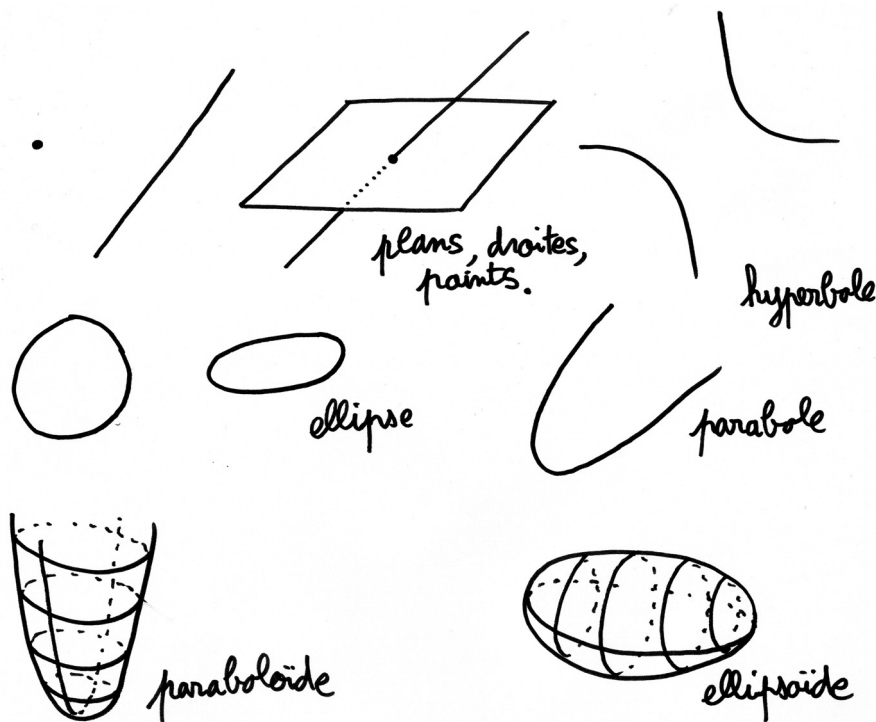 plans, droites,
points.
hyperbole
ellipse
parabole
paraboloïde
ellipsoïde